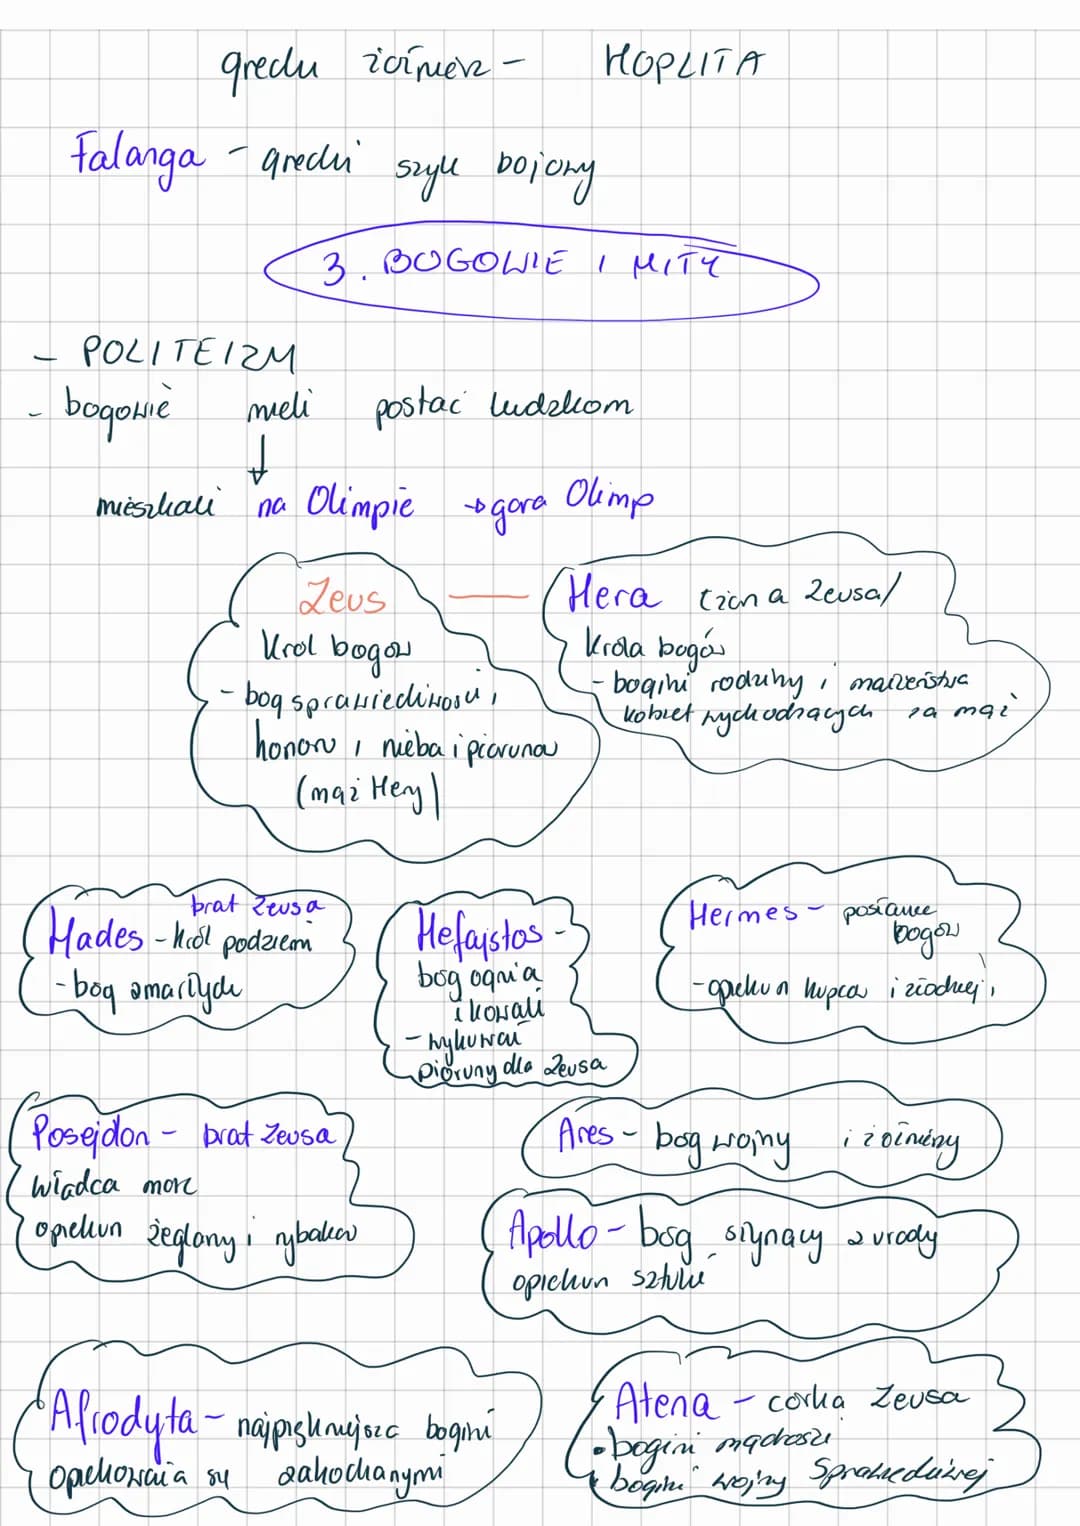 grecki żołnierz - HOPLITA
Falanga - grecki szyk bojowy
3. BOGOWIE I MITY
- POLITEIZM
- bogowie mieli postać ludzkom
mieszkali na Olimpie → gora Olimp
Zeus
Krol bogow
- bog sprawiedliwości,
honoru i nieba i piorunow
(mąż Hery)
Hera (żona Zeusa/
Krola bogów
- bogini rodziny i małżeństwa
kobiet wychodzących za mąż
brat Zeusa
Hades - król podziemi
- bog zmarłych
Hefajstos -
bóg ognia
i kowali
- wykuwał
pioruny dla Zeusa
Hermes - posłaniec
bogów
- opiekun kupców i złodzieji
Posejdon - brat Zeusa
Władca morz
opiekun żeglarzy i rybaków
Ares - bog wojny i żołnierzy
Apollo - bóg słynący z urody
opiekun sztuki
Afrodyta - najpiękniejsza bogini
opiekowała się zakochanymi
Atena - corka Zeusa
• bogini mądrości
• bogini wojny Sprawiedliwej